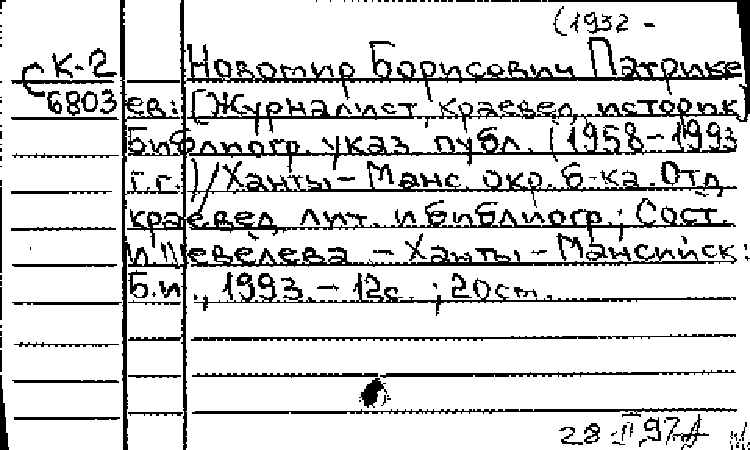 (1932 -
К-2 Новомир Борисович Патрике
С6803 ев: [Журналист, краевед, историк]
Библиогр. указ. публ. (1958-1993
г.г.) / Ханты-Манс. окр. б-ка. Отд.
краевед. лит. и библиогр.; Сост.
И Шевелева - Ханты-Мансийск:
Б.и., 1993. - 12с. ; 20см.
28 II 97